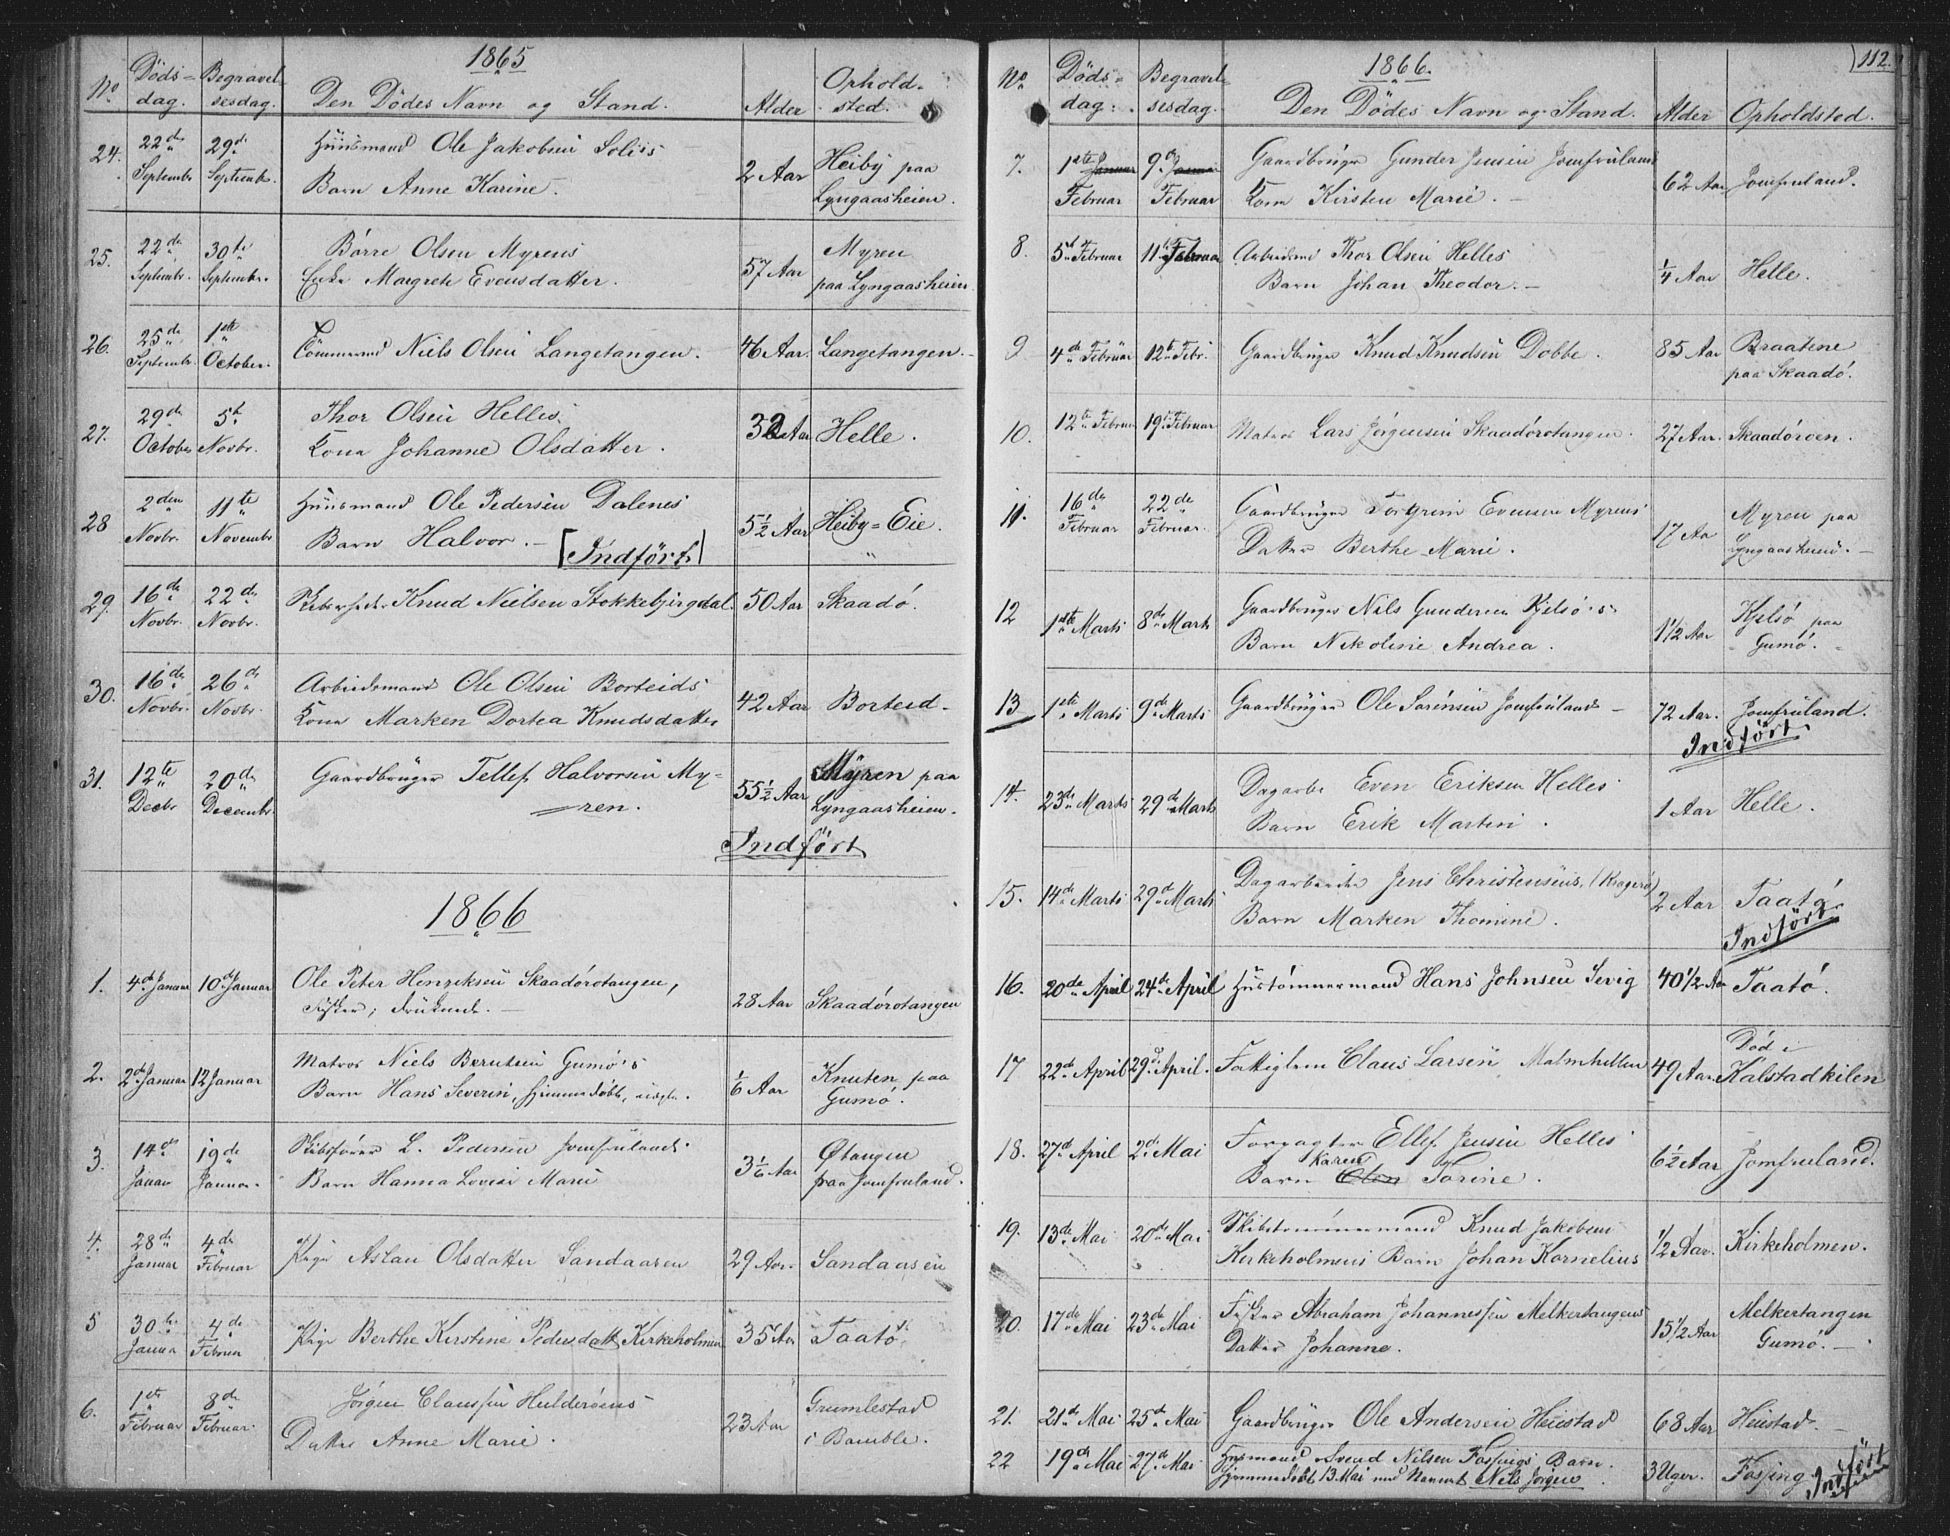 1865
No Dödsdag. Begravelsesdag. Den Dödes Navn og Stand. Alder Opholdsted.
24. 22de Septembr 29de Septembr. Huusmand Ole Jakobsen Soliis 2 Aar Heiby paa
Barn Anne Karine. Lyngaasheien.
25. 22de Septembr. 30te Septembr. Börre Olsen Myrens 57 Aar Myren
Enke Margreth Evensdatter. paa Lyngaasheien.
26. 25de Septembr. 1ste October. Tömmermand Niels Olsen Langetangen. 46 Aar. Langetangen.
27. 29de October 5te Novbr. Thor Olsen Helles 32 Aar Helle.
Kona Johanne Olsdatter.
28 2den Novbr. 11te Novembr Huusmand Ole Pedersen Dalenes 5½ Aar Heiby=Eie.
Barn Halvor. — [Indfört]
29. 16de Novbr. 22de Novbr. Knud Nielsen Stokkebjergdal. 50 Aar Skaadö.
30. 16de Novbr. 26de Novbr. Arbeidsmand Ole Olsen Borteids 42 Aar Borteid.
Kona Marken Dortea Knudsdatter
31. 12te Decbr 20de Decembr. Gaardbruger Tellef Halvorsen My= 55½ Aar Myren paa
ren. Lyngaasheien.
Indfört
1866
1. 4de Januar 10de Januar Ole Peter Henriksen Skaadörotangen, 28 Aar Skaadörotangen
Fisker; druknede. —
2. 2de Januar 12 Januar Matros Niels Berntsen Gumö's 1/6 Aar Knuten paa
Barn Hans Severin, hjemmedöbt, Gumö.
3. 14de Januar 19de Januar. Skibsförer L. Pedersen Jomfrulands 3 1/6 Aar Øtangen
Barn Hanna Lovise Marie paa Jomfruland.
4. 28de Januar 4de Februar Pige Aslau Olsdatter Sandaasen 29 Aar. Sandaasen
5 30te Januar 4de Februar Pige Berthe Kerstine Pedersdatt. Kirkeholmen 35 Aar Taatö.
6. 1ste Februar 8de Februar. Jörgen Clausen Hulderöens 23 Aar Grumlestad
Datter Anne Marie. i Bamble.
112.
1866.
No Dödsdag: Begravelsesdag. Den Dödes Navn og Stand. Alder Opholdsted.
7. 1ste Januar Februar 9de Januar Februar Gaardbruger Gunder Jensen Jomfruland 62 Aar Jomfruland.
Kona Kirsten Marie. —
8. 5te Februar 11te Februar Arbeidsmd Thor Olsen Helles ¼ Aar Helle.
Barn Johan Theodor. —
9 4de Februar 12te Febr. Gaardbruger Knud Knudsen Dobbe. 85 Aar Braatene
paa Skaadö.
10. 12te Februar 19de Februar Matros Lars Jörgensen Skaadörotangen. 27 Aar. Skaadöroen.
11. 16de Februar 22de Februar. Gaardbruger Torgrim Evensen Myrens 17 Aar Myren paa
Datter Berthe Marie. Lyngaasheien. —
12 1ste Marts 8de Marts Gaardbruger Nils Gundersen Kjelsö's 1½ Aar Kjelsö paa
Barn Nikoline Andrea. Gumö.
13 1ste Marts 9de Marts Gaardbruger Ole Sörensen Jomfruland — 72 Aar. Jomfruland.
Indfört.
14. 23de Marts 29de Marts Dagarbe Even Eriksen Helles 1 Aar Helle.
Barn Erik Martin.
15. 14de Marts 29de Marts Dagarbeider Jens Christensens, (Kragerö) 2 Aar Taatö.
Barn Marken Thomine. Indfört
16. 20de April 24de April Hustömmermand Hans Johnsen Sevig 40 1/2 Aar Taatö.
17 22de April 29de April. Fattiglem Claus Larsen Malmhellen 49 Aar. Död i
Kalstadkilen
18. 27de April 2de Mai Forpagter Ellef Jensen Helles 6½ Aar Jomfruland.
Barn Karen Olen Torine.
19. 13de Mai 20de Mai. Skibstömmermand Knud Jakobsen 1/2 Aar. Kirkeholmen.
Kerkeholmens Barn Johan Kornelius
20. 17de Mai 23de Mai Fisker Abraham Johannessen Melkertangens 15 1/2 Aar Melkertangen
Datter Johanne. Gumö. —
21. 21de Mai 25de Mai Gaardbruger Ole Andersen Heistad 68 Aar Heistad. —
22 19de Mai 27de Mai. Husmand Svend Nilsen Fossings Barn. 3 Uger. Fossing. Indfört
hjemmedöbt 13 Mai med Navnet Nils Jörgen.